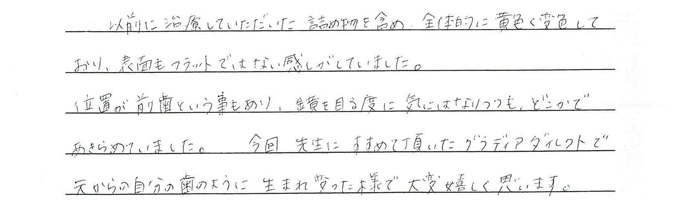 以前に治療していただいた詰め物を含め、全体的に黄色く変色して
おり、表面もフラットではない感じがしていました。
位置が前歯という事もあり、鏡を見る度に気にはなりつつも、どこかで
あきらめていました。 今回 先生にすすめて頂いたグラディアダイレクトで
元からの自分の歯のように生まれ変った様で大変嬉しく思います。